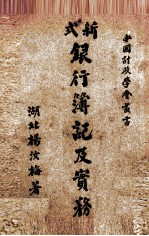 中國財政学会叢書
新式
銀行簿記及實務
湖北楊汝梅著